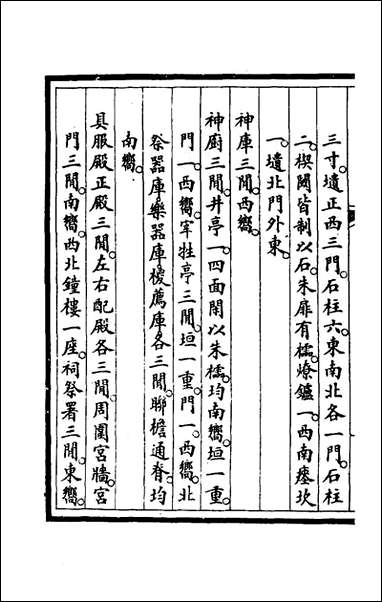 三寸。壝正西三門。石柱六。東南北各一門。石柱
二。楔閾皆制以石。朱扉有櫺。燎鑪一。西南瘞坎
一。壝北門外東。
神庫三間。西嚮。
神廚三間。井亭一。四面閑以朱櫺。均南嚮。垣一重。
門一。西嚮。宰牲亭三間。垣一重。門一。西嚮。北
祭器庫樂器庫椶薦庫各三間。聯檐通脊。均
南嚮。
具服殿正殿三間。左右配殿各三間。周圍宮牆。宮
門三間。南嚮。西北鐘樓一座。祠祭署三間。東嚮。